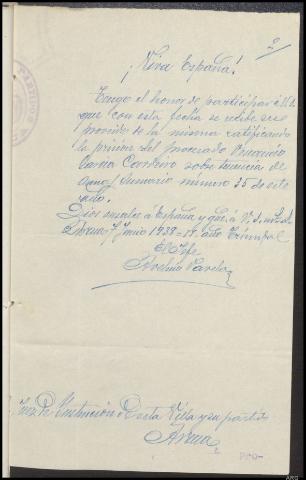 2
¡Viva España!
Tengo el honor de participar a V.S.
que con esta fecha se recibe su
provdo de la misma ratificando
la prisión del procesado
García Cordeiro sobre tenencia de
armas Sumario número 35 de este
año.
Dios salve a España y que a V.S. m.
Arzua 7 Junio 1938= II. año Triunfal
El Jefe
Avelino Varela
Juez de Instrucción de esta Villa y su partido
Arzua